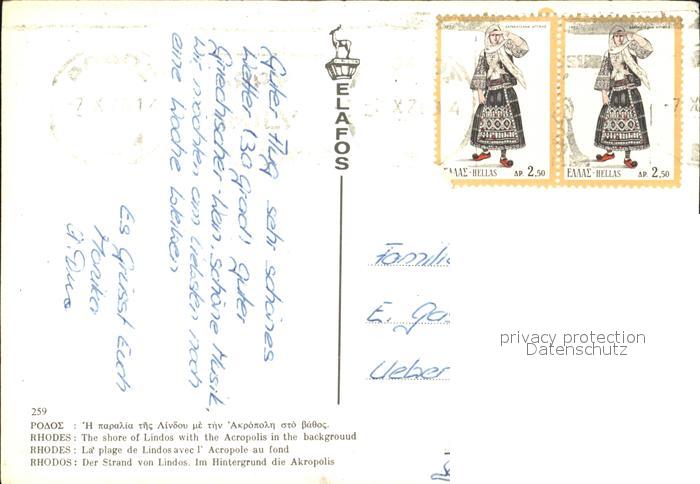 Guter Flug sehr schönes
Wetter (30 Grad) guter
Griechischer-Wein, schöne Musik,
wir möchten am liebsten noch
eine Woche bleiben
Es Grüsst Euch
Monika
ELAFOS
ΕΛΛΑΣ-HELLAS ΔΡ. 2,50
ΕΛΛΑΣ-HELLAS ΔΡ. 2,50
Famili
E. Ga
Ueber
privacy protection
Datenschutz
259
ΡΟΔΟΣ : Ἡ παραλία τῆς Λίνδου μὲ τὴν Ἀκρόπολη στὸ βάθος.
RHODES : The shore of Lindos with the Acropolis in the backgrouud
RHODES : La' plage de Lindos avec l' Acropole au fond
RHODOS : Der Strand von Lindos. Im Hintergrund die Akropolis